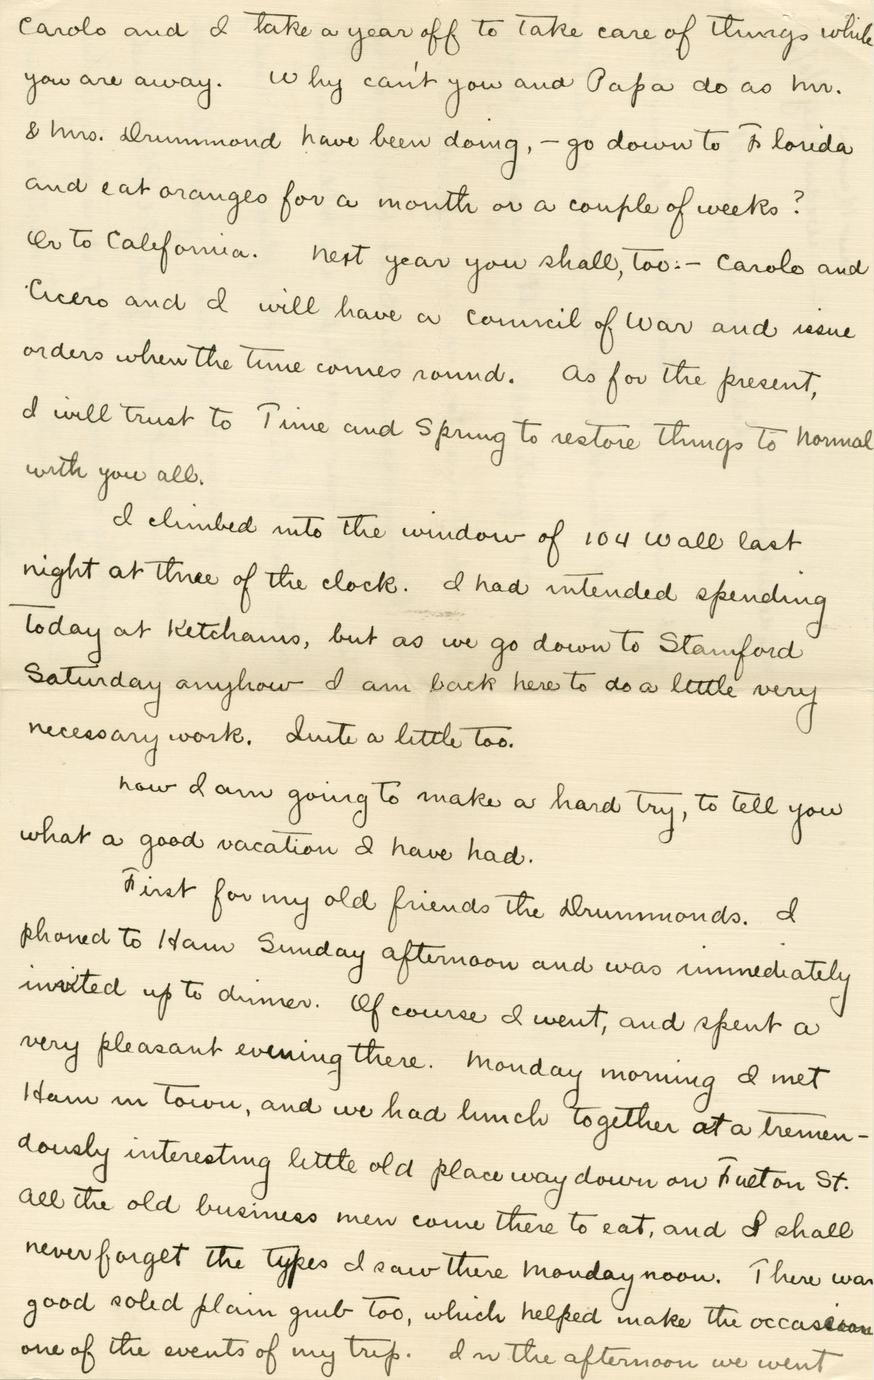 Carolo and I take a year off to take care of things while
you are away. Why can't you and Papa do as Mr.
& Mrs. Drummond have been doing, - go down to Florida
and eat oranges for a month or a couple of weeks?
Or to California. Next year you shall, too: - Carolo and
Cicero and I will have a Council of War and issue
orders when the time comes round. As for the present,
I will trust to Time and Spring to restore things to normal
with you all.
I climbed into the window of 104 Wall last
night at three of the clock. I had intended spending
today at Ketchams, but as we go down to Stamford
Saturday anyhow I am back here to do a little very
necessary work. Quite a little too.
Now I am going to make a hard try, to tell you
what a good vacation I have had.
First for my old friends the Drummonds. I
phoned to Ham Sunday afternoon and was immediately
invited up to dinner. Of course I went, and spent a
very pleasant evening there. Monday morning I met
Ham in town, and we had lunch together at a tremen-
dously interesting little old place way down on Fulton St.
All the old business men come there to eat, and I shall
never forget the types I saw there Monday noon. There was
good solid plain grub too, which helped make the occasion
one of the events of my trip. In the afternoon we went